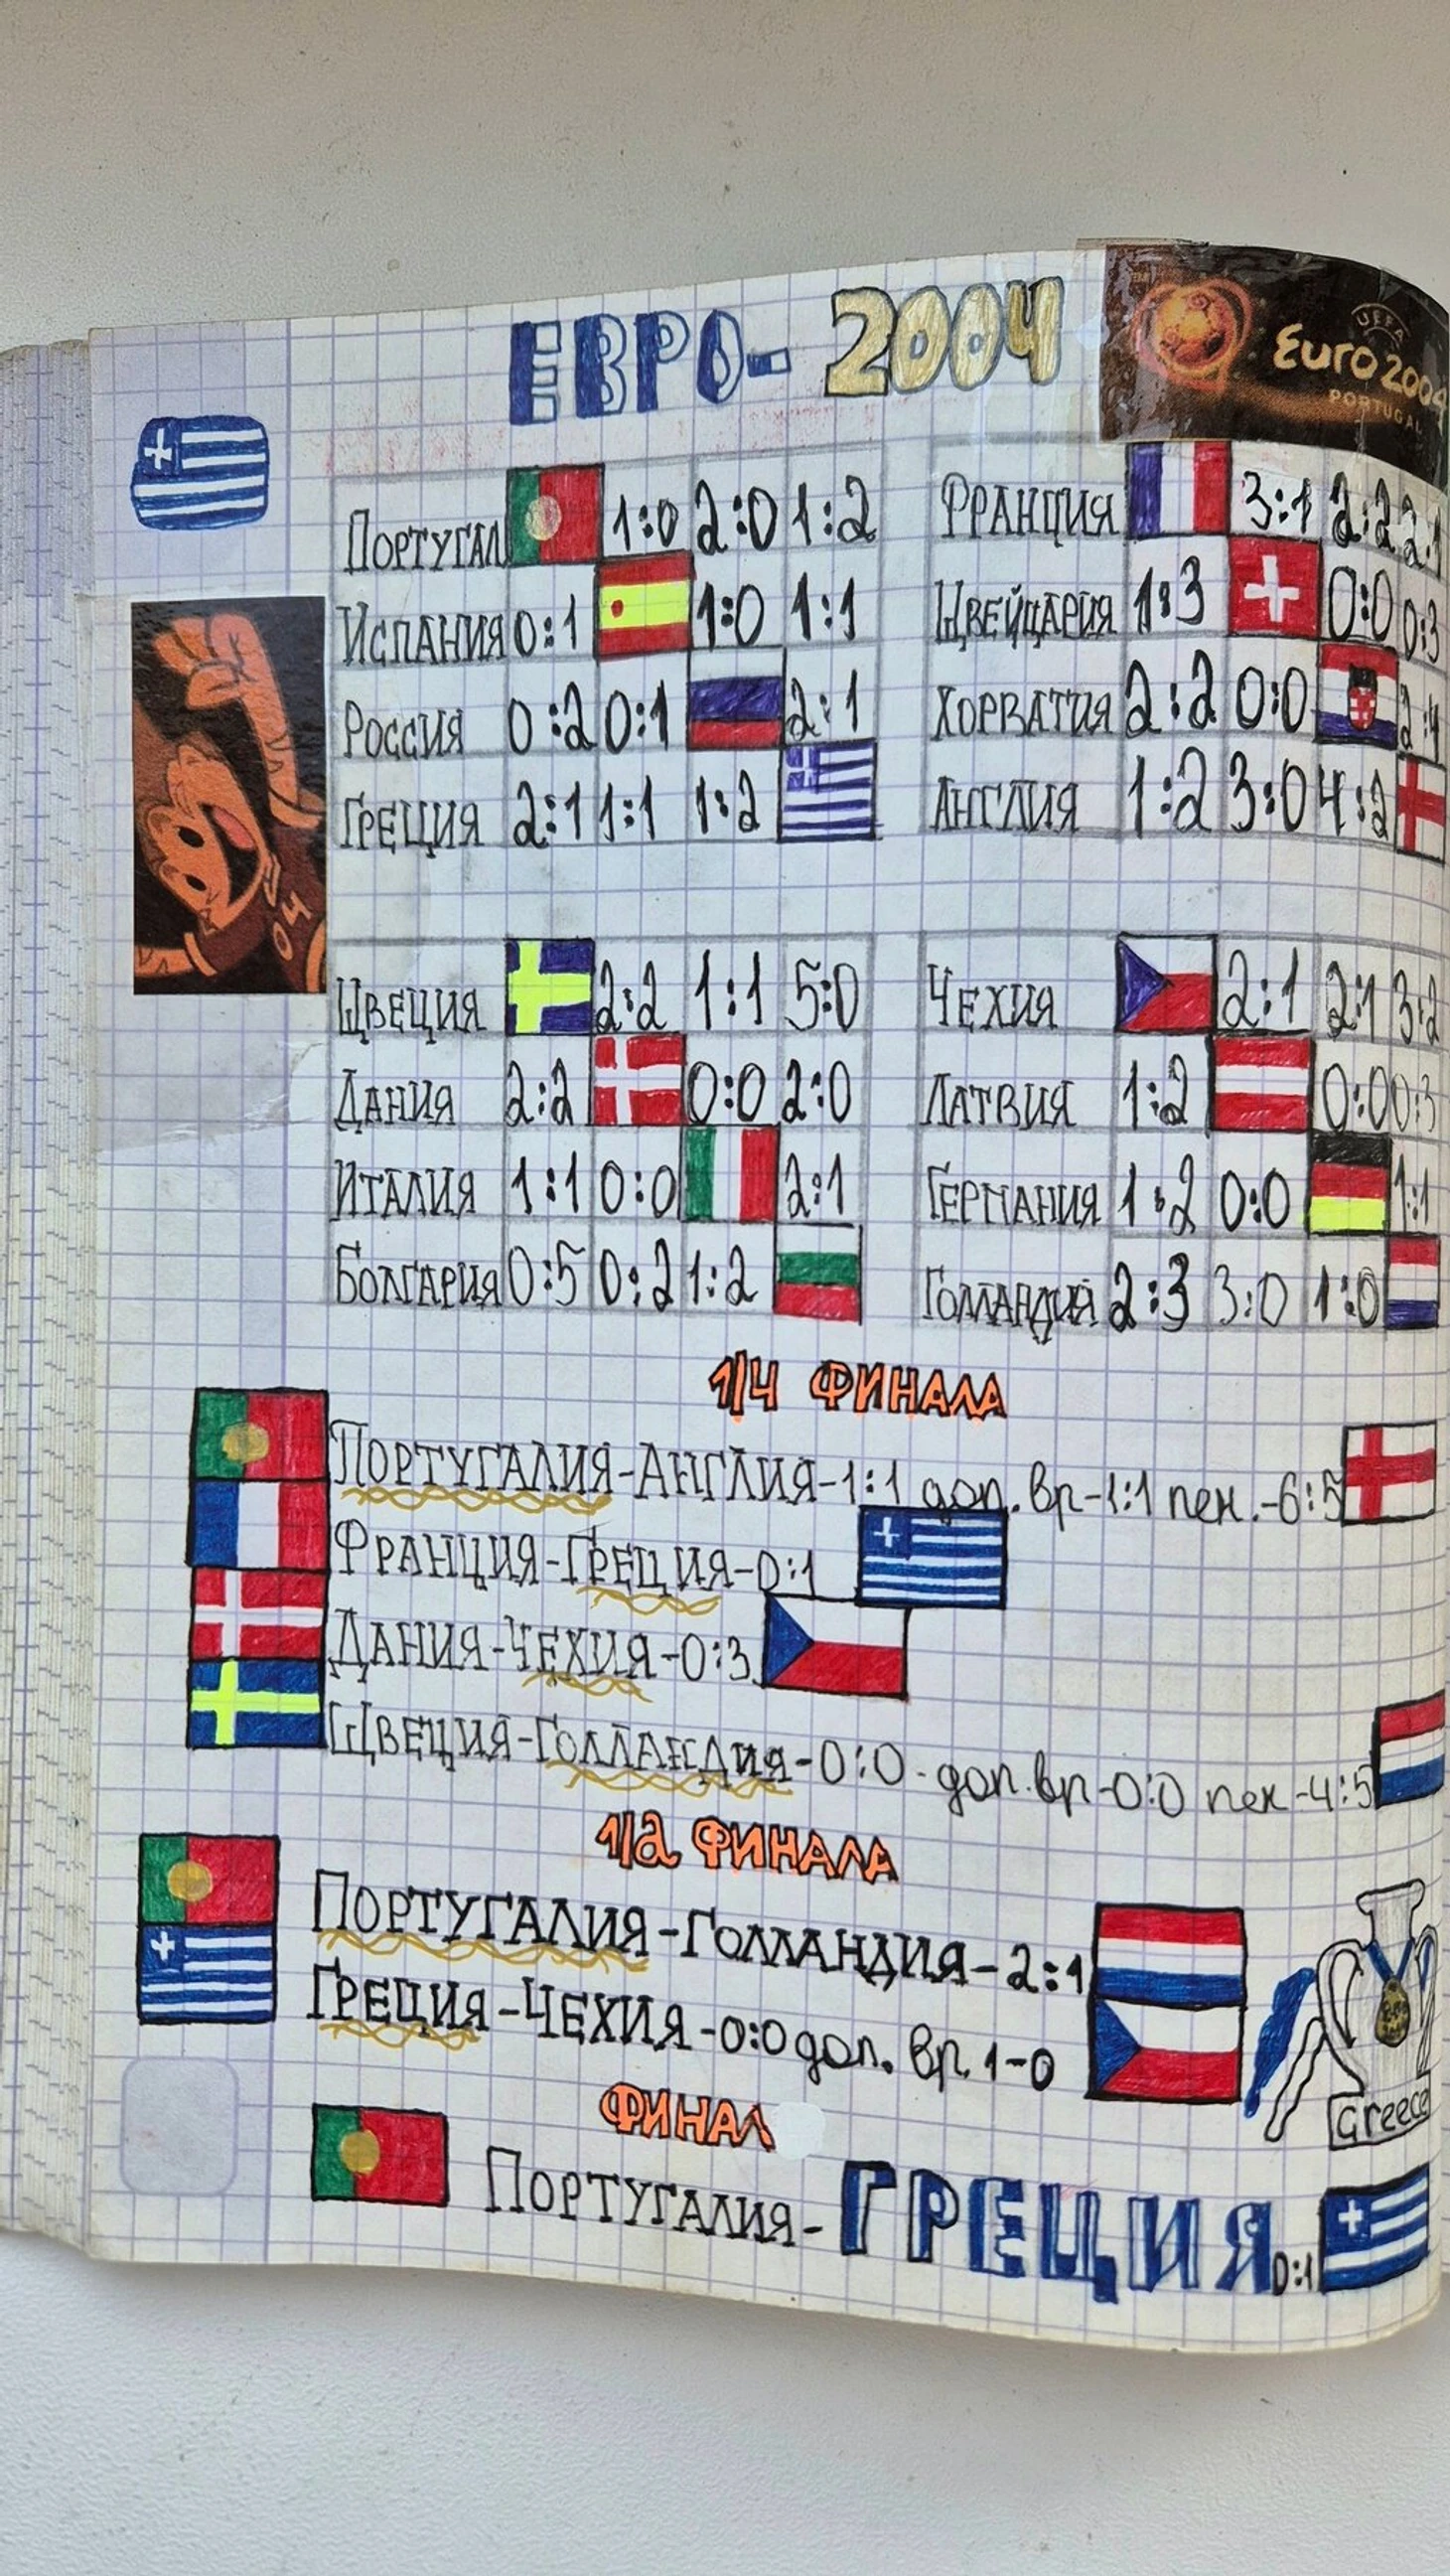 ЕВРО-2004
UEFA
Euro 2004
PORTUGAL
ПОРТУГАЛ 1:0 2:0 1:2
ИСПАНИЯ 0:1 1:0 1:1
РОССИЯ 0:2 0:1 2:1
ГРЕЦИЯ 2:1 1:1 1:2
04
ФРАНЦИЯ 3:1 2:2 2:1
ШВЕЙЦАРИЯ 1:3 0:0 0:3
ХОРВАТИЯ 2:2 0:0 2:4
АНГЛИЯ 1:2 3:0 4:2
ШВЕЦИЯ 2:2 1:1 5:0
ДАНИЯ 2:2 0:0 2:0
ИТАЛИЯ 1:1 0:0 2:1
БОЛГАРИЯ 0:5 0:2 1:2
ЧЕХИЯ 2:1 2:1 3:2
ЛАТВИЯ 1:2 0:0 0:3
ГЕРМАНИЯ 1:2 0:0 1:1
ГОЛЛАНДИЯ 2:3 3:0 1:0
1/4 ФИНАЛА
ПОРТУГАЛИЯ-АНГЛИЯ-1:1 доп. вр-1:1 пен.-6:5
ФРАНЦИЯ-ГРЕЦИЯ-0:1
ДАНИЯ-ЧЕХИЯ-0:3
ШВЕЦИЯ-ГОЛЛАНДИЯ-0:0-доп.вр-0:0 пен-4:5
1/2 ФИНАЛА
ПОРТУГАЛИЯ-ГОЛЛАНДИЯ-2:1
ГРЕЦИЯ-ЧЕХИЯ-0:0 доп. вр. 1-0
Greece
ФИНАЛ
ПОРТУГАЛИЯ-ГРЕЦИЯ 0:1